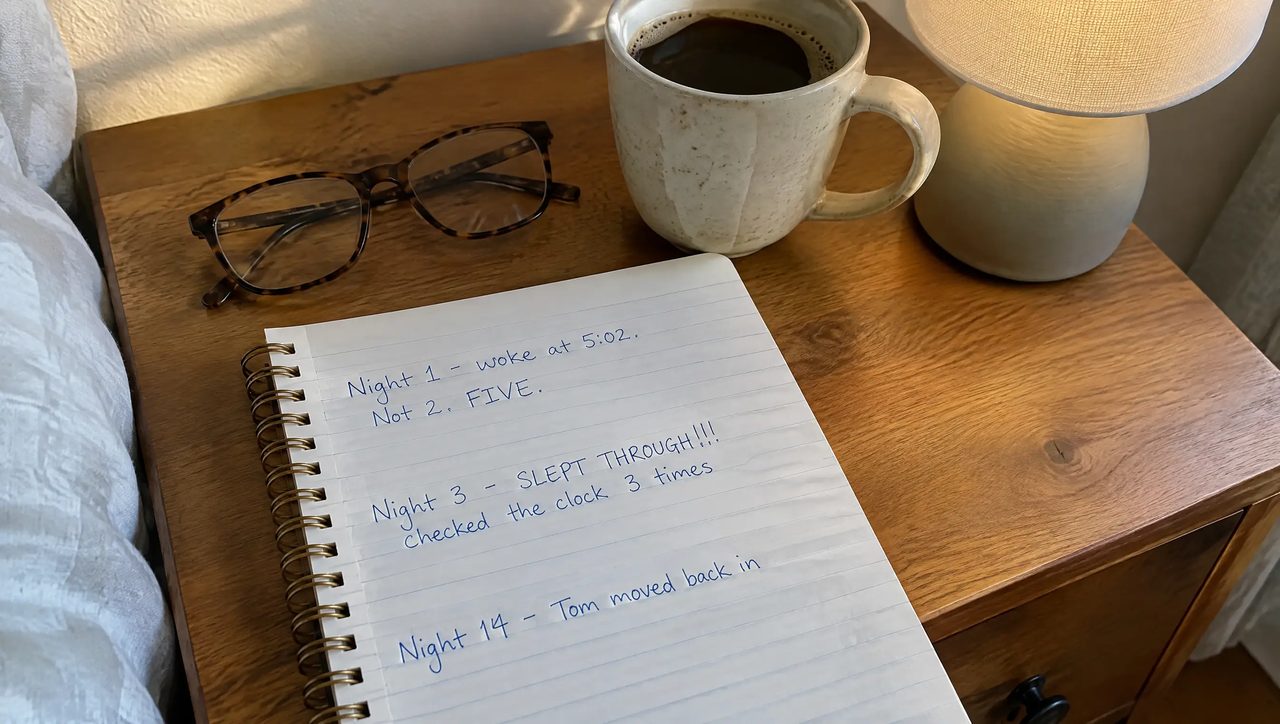 Night 1 - woke at 5:02.
Not 2. FIVE.
Night 3 - SLEPT THROUGH!!!
checked the clock 3 times
Night 14 - Tom moved back in